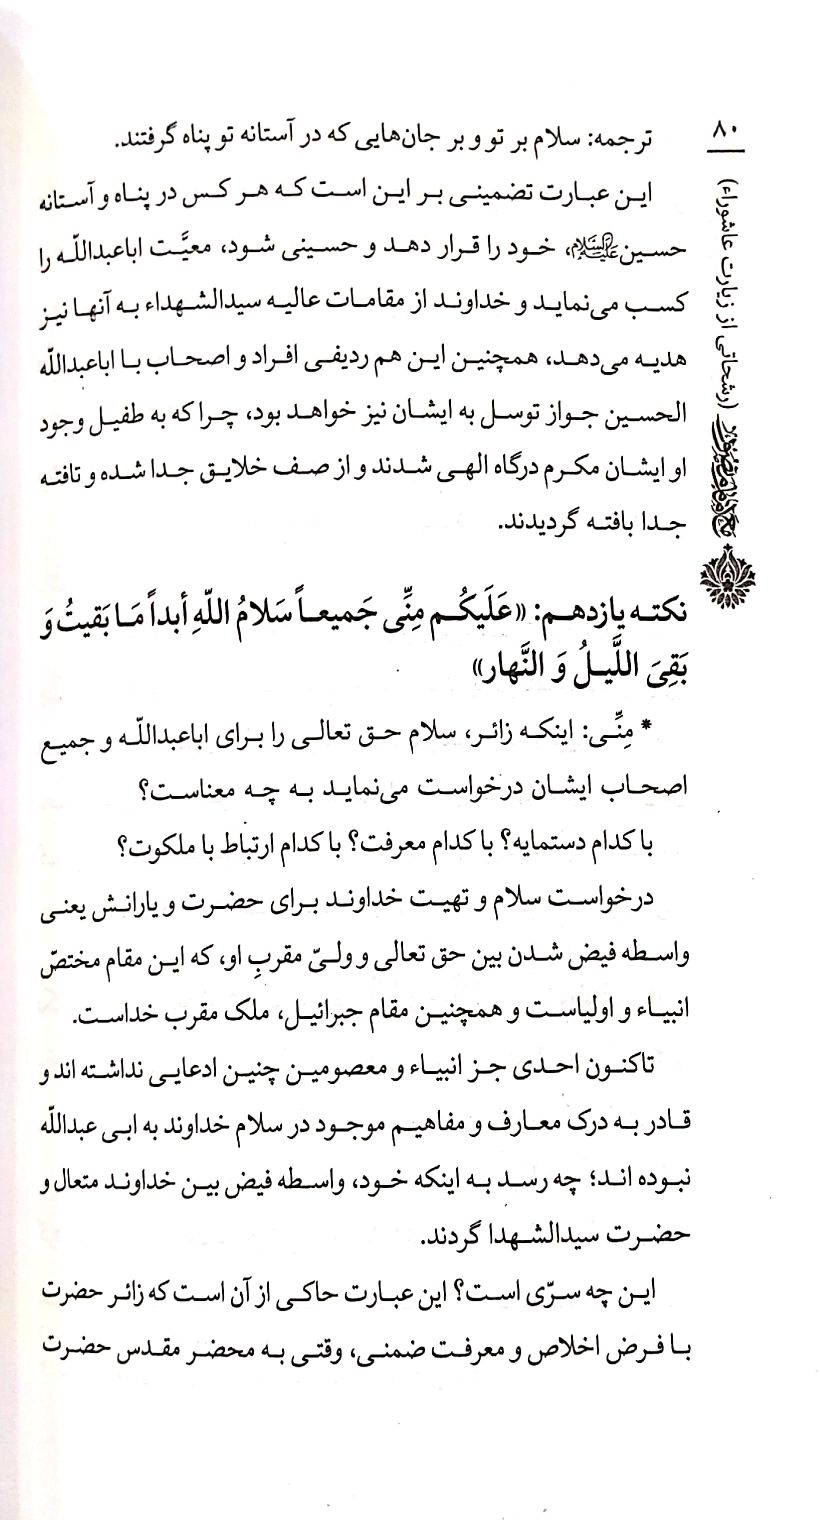 ۸۰
(رشحاتی از زیارت عاشوراء)
ترجمه: سلام بر تو و بر جان‌هایی که در آستانه تو پناه گرفتند.
این عبارت تضمینی بر این است که هر کس در پناه و آستانه
حسین علیه‌السلام، خود را قرار دهد و حسینی شود، معیَّت اباعبداللّه را
کسب می‌نماید و خداوند از مقامات عالیه سیدالشهداء به آنها نیز
هدیه می‌دهد، همچنین این هم ردیفی افراد و اصحاب با اباعبداللّه
الحسین جواز توسل به ایشان نیز خواهد بود، چرا که به طفیل وجود
او ایشان مکرم درگاه الهی شدند و از صف خلایق جدا شده و تافته
جدا بافته گردیدند.
نکته یازدهم: «عَلَیکُم مِنِّی جَمیعاً سَلامُ اللّهِ أبداً مَا بَقیتُ وَ
بَقِیَ اللَّیلُ وَ النَّهار»
* مِنِّی: اینکه زائر، سلام حق تعالی را برای اباعبداللّه و جمیع
اصحاب ایشان درخواست می‌نماید به چه معناست؟
با کدام دستمایه؟ با کدام معرفت؟ با کدام ارتباط با ملکوت؟
درخواست سلام و تهیت خداوند برای حضرت و یارانش یعنی
واسطه فیض شدن بین حق تعالی و ولیّ مقربِ او، که این مقام مختصّ
انبیاء و اولیاست و همچنین مقام جبرائیل، ملک مقرب خداست.
تاکنون احدی جز انبیاء و معصومین چنین ادعایی نداشته اند و
قادر به درک معارف و مفاهیم موجود در سلام خداوند به ابی عبداللّه
نبوده اند؛ چه رسد به اینکه خود، واسطه فیض بین خداوند متعال و
حضرت سیدالشهدا گردند.
این چه سرّی است؟ این عبارت حاکی از آن است که زائر حضرت
با فرض اخلاص و معرفت ضمنی، وقتی به محضر مقدس حضرت